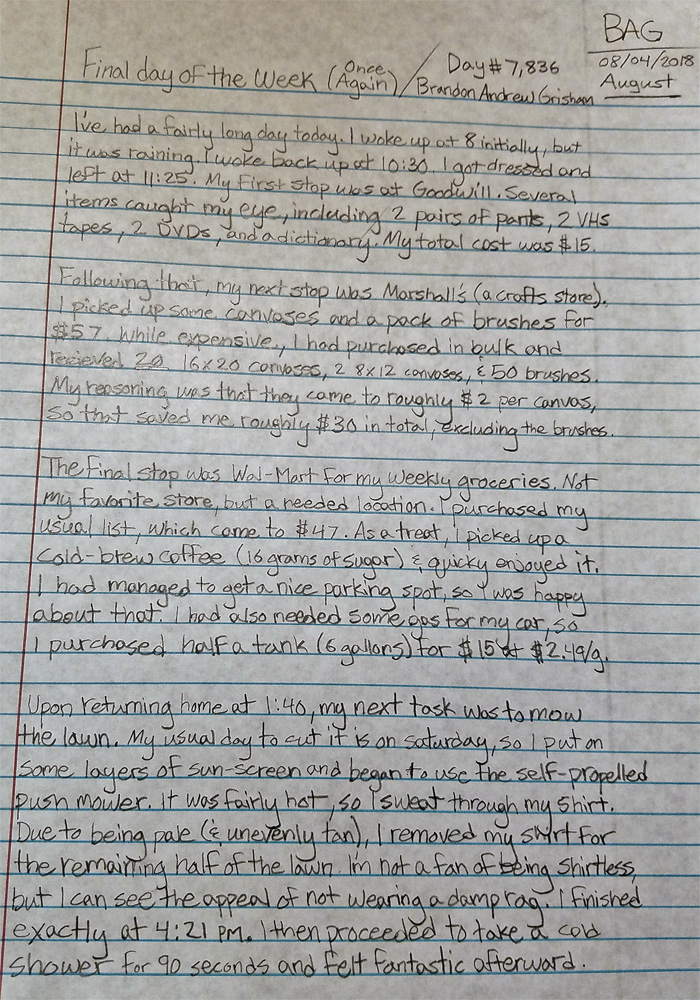 BAG
08/04/2018
August
Final day of the Week (Once Again) / Day# 7,836
Brandon Andrew Grisham
I've had a fairly long day today. I woke up at 8 initially, but
it was raining. I woke back up at 10:30. I got dressed and
left at 11:25. My first stop was at Goodwill. Several
items caught my eye, including 2 pairs of pants, 2 VHS
tapes, 2 DVDs, and a dictionary. My total cost was $15.
Following that, my next stop was Marshall's (a crafts store).
I picked up some canvases and a pack of brushes for
$57. While expensive, I had purchased in bulk and
recieved 20 16x20 canvases, 2 8x12 canvases, & 50 brushes.
My reasoning was that they came to roughly $2 per canvas,
so that saved me roughly $30 in total, excluding the brushes.
The final stop was Wal-Mart for my weekly groceries. Not
my favorite store, but a needed location. I purchased my
usual list, which came to $47. As a treat, I picked up a
cold-brew coffee (16 grams of sugar) & quicky enjoyed it.
I had managed to get a nice parking spot, so I was happy
about that. I had also needed some gas for my car, so
I purchased half a tank (6 gallons) for $15 at $2.49/g.
Upon returning home at 1:40, my next task was to mow
the lawn. My usual day to cut it is on saturday, so I put on
some layers of sun-screen and began to use the self-propelled
push mower. It was fairly hot, so I sweat through my shirt.
Due to being pale (& unevenly tan), I removed my shirt for
the remaining half of the lawn. I'm not a fan of being shirtless,
but I can see the appeal of not wearing a damp rag. I finished
exactly at 4:21 PM. I then proceeded to take a cold
shower for 90 seconds and felt fantastic afterward.